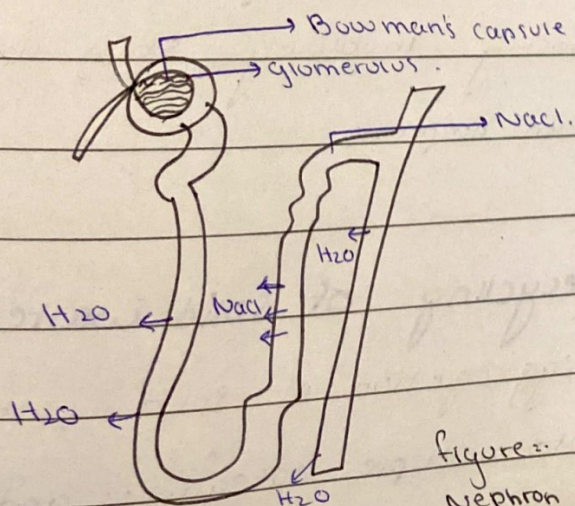 Bowman's capsule
Glomerulus.
Nacl.
H2O
H2O
Nacl
H2O
H2O
figure:-
Nephron